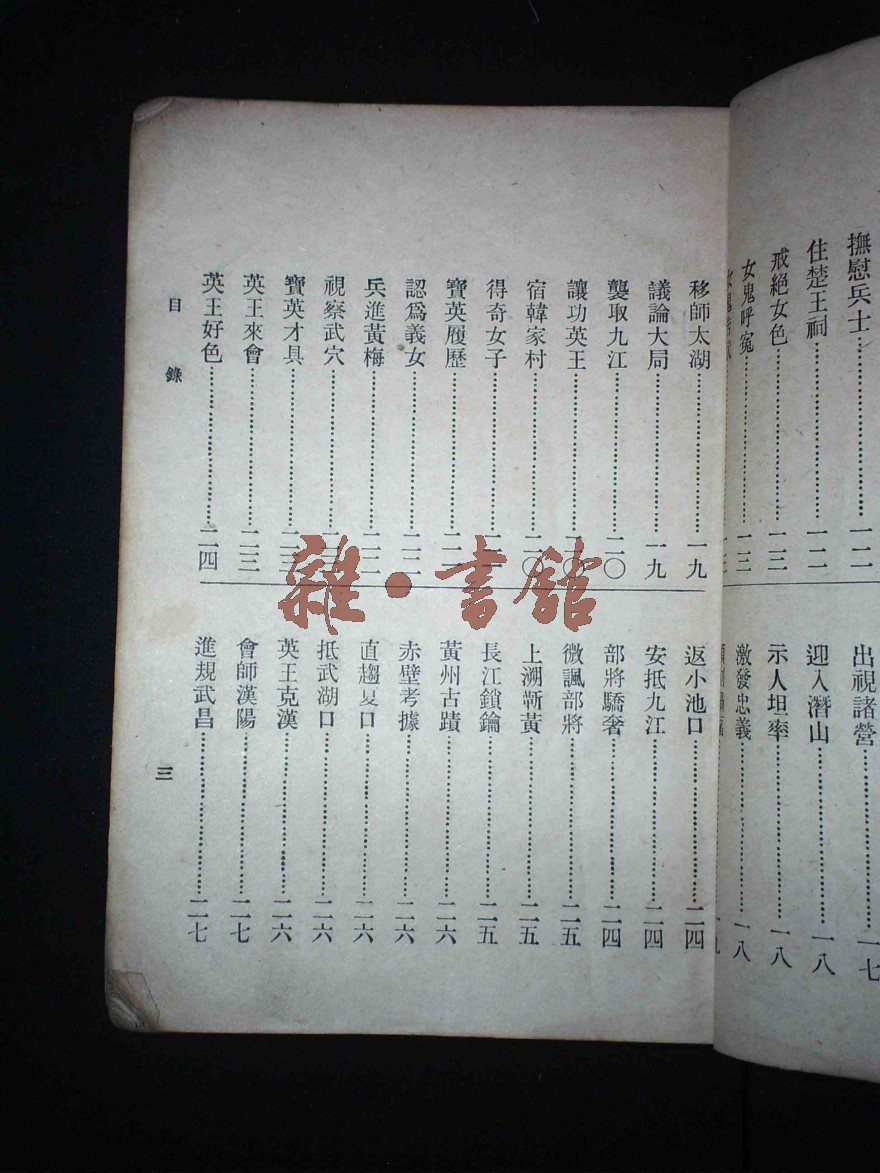 撫慰兵士……一二
住楚王祠……一二
戒絕女色……一三
女鬼呼冤……一三
出視諸營……一七
迎入潛山……一八
示人坦率……一八
激發忠義……一八
移師太湖……一九
議論大局……一九
襲取九江……二〇
讓功英王……二〇
宿韓家村……二〇
得奇女子……二一
寶英履歷……
認爲義女……二二
兵進黃梅……二二
視察武穴……
寶英才具……二三
英王來會……二三
英王好色……二四
返小池口……二四
安抵九江……二四
部將驕奢……二四
微諷部將……二五
上溯蘄黃……二五
長江鎖鑰……二五
黃州古蹟……二六
赤壁考據……二六
直趨夏口……二六
抵武湖口……二六
英王克漢……二六
會師漢陽……二七
進規武昌……二七
目錄
三
雜·書館